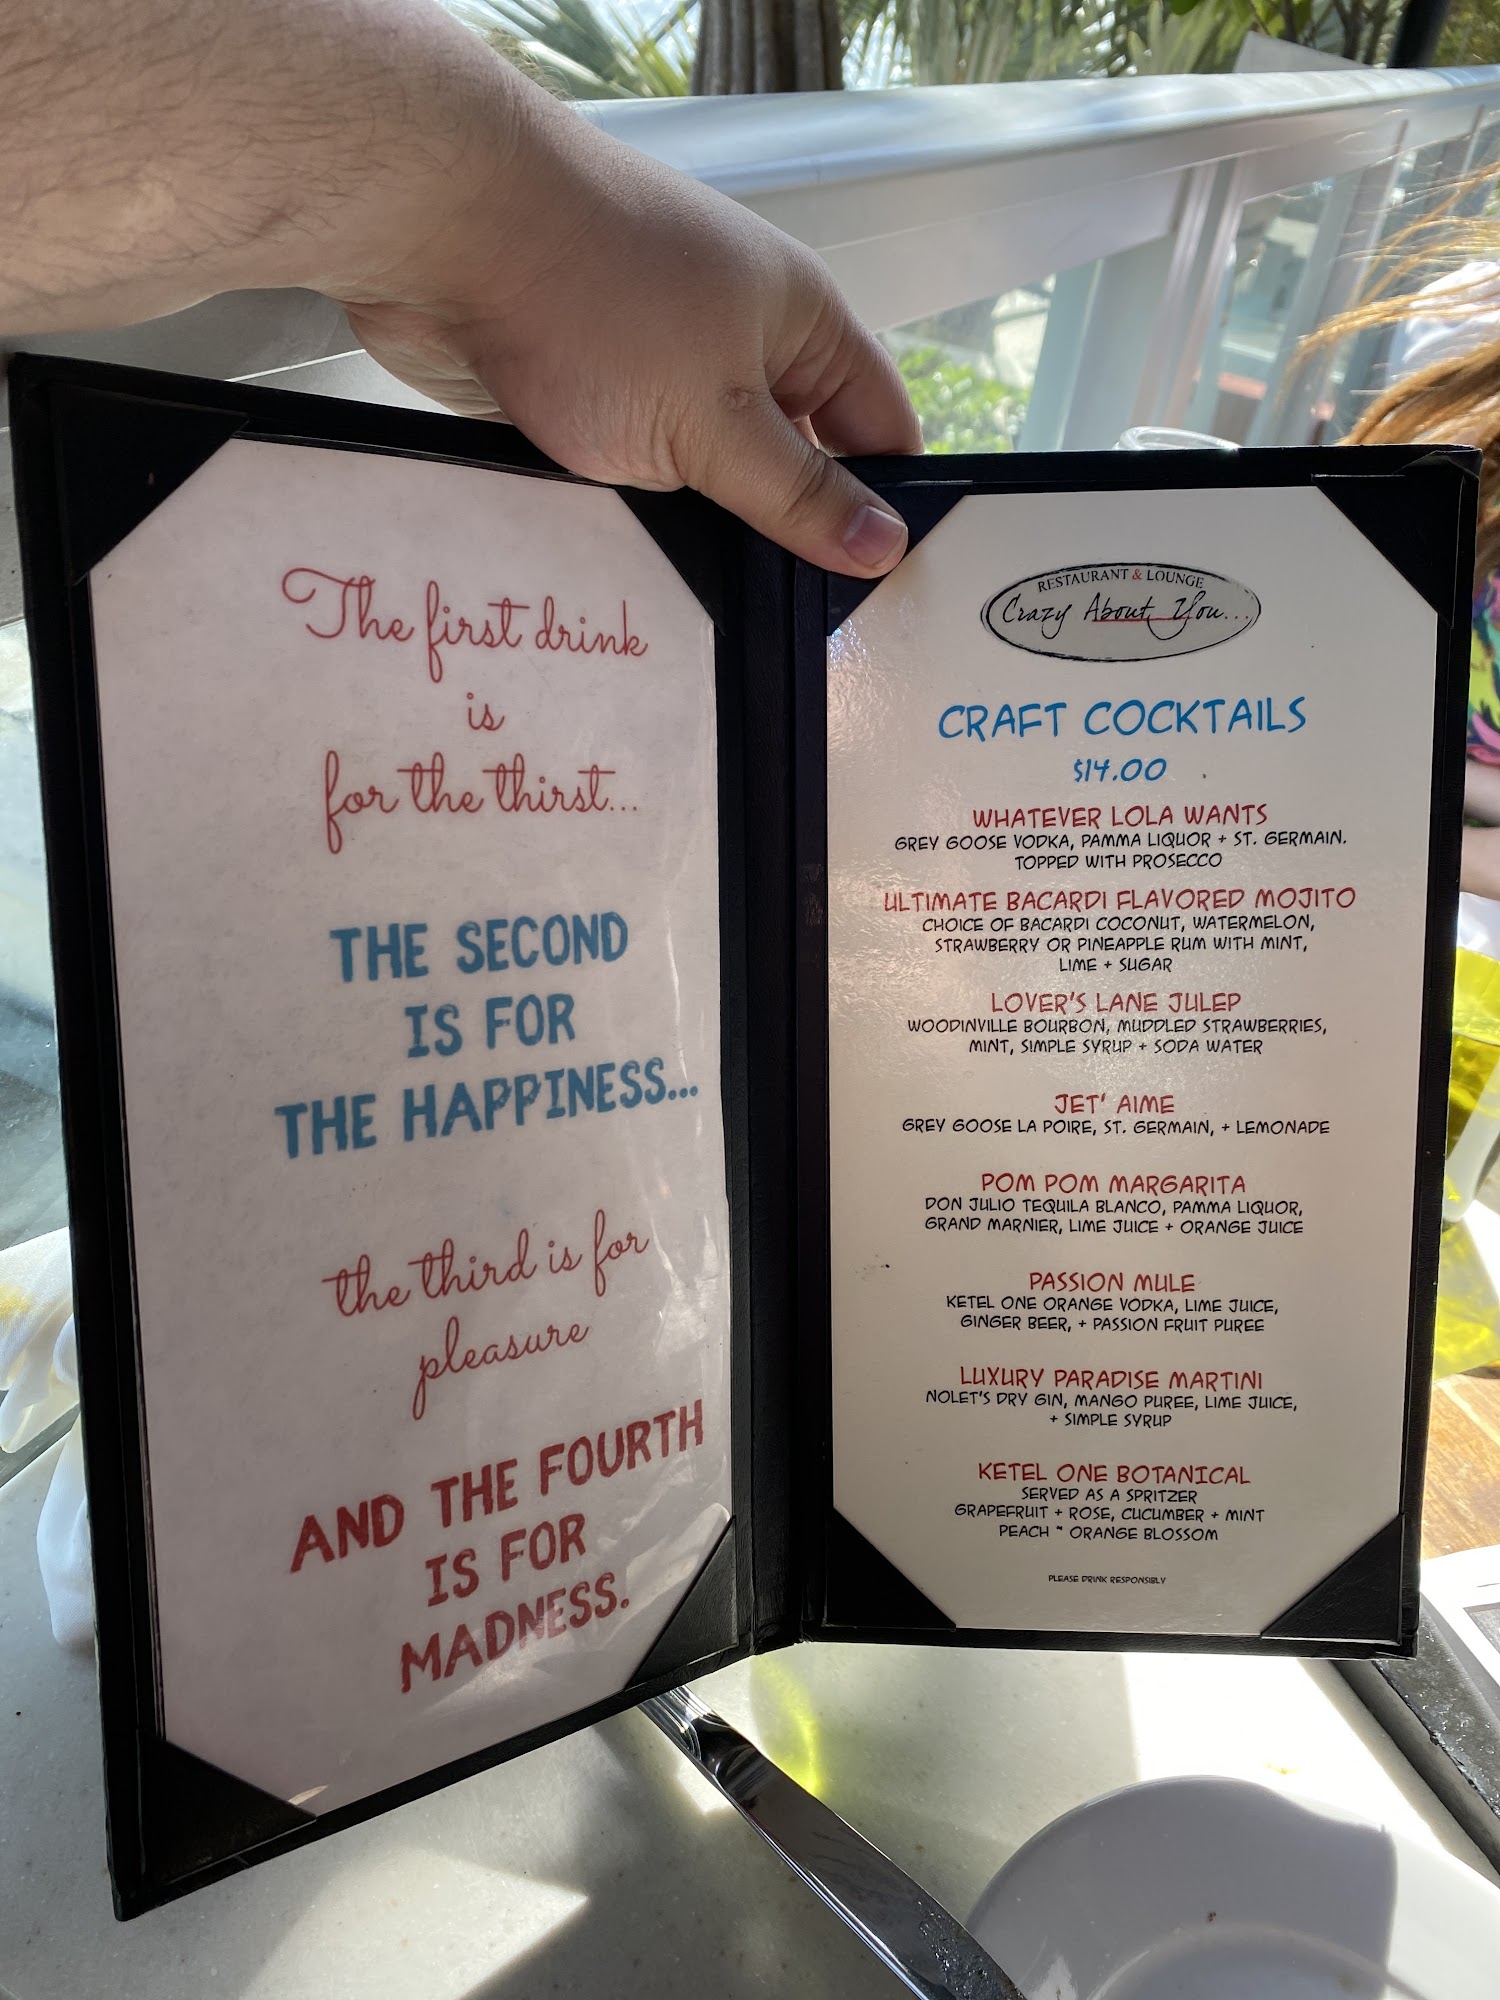 The first drink
is
for the thirst...
THE SECOND
IS FOR
THE HAPPINESS...
the third is for
pleasure
AND THE FOURTH
IS FOR
MADNESS.
RESTAURANT & LOUNGE
Crazy About You...
CRAFT COCKTAILS
$14.00
WHATEVER LOLA WANTS
GREY GOOSE VODKA, PAMMA LIQUOR + ST. GERMAIN.
TOPPED WITH PROSECCO
ULTIMATE BACARDI FLAVORED MOJITO
CHOICE OF BACARDI COCONUT, WATERMELON,
STRAWBERRY OR PINEAPPLE RUM WITH MINT,
LIME + SUGAR
LOVER'S LANE JULEP
WOODINVILLE BOURBON, MUDDLED STRAWBERRIES,
MINT, SIMPLE SYRUP + SODA WATER
JET' AIME
GREY GOOSE LA POIRE, ST. GERMAIN, + LEMONADE
POM POM MARGARITA
DON JULIO TEQUILA BLANCO, PAMMA LIQUOR,
GRAND MARNIER, LIME JUICE + ORANGE JUICE
PASSION MULE
KETEL ONE ORANGE VODKA, LIME JUICE,
GINGER BEER, + PASSION FRUIT PUREE
LUXURY PARADISE MARTINI
NOLET'S DRY GIN, MANGO PUREE, LIME JUICE,
+ SIMPLE SYRUP
KETEL ONE BOTANICAL
SERVED AS A SPRITZER
GRAPEFRUIT + ROSE, CUCUMBER + MINT
PEACH ~ ORANGE BLOSSOM
PLEASE DRINK RESPONSIBLY